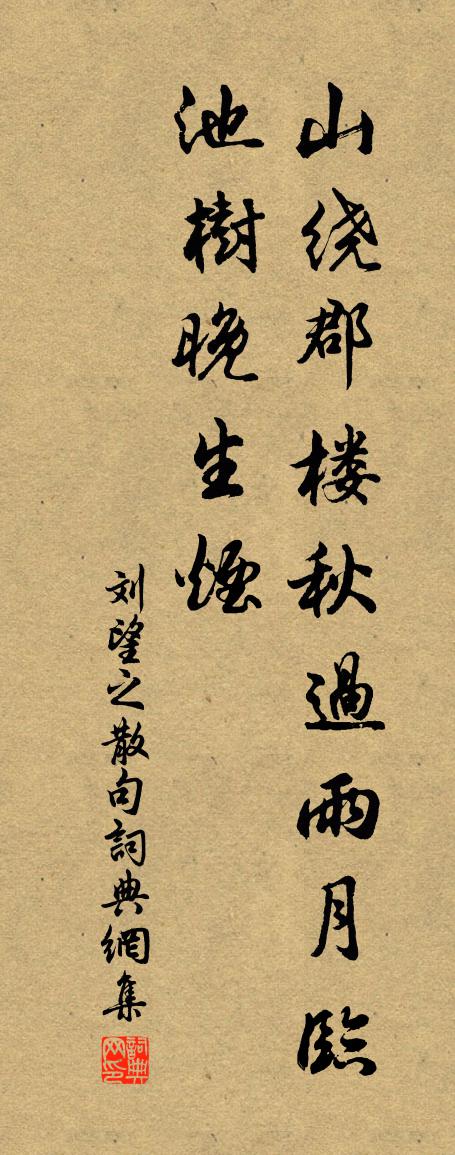 山绕郡楼秋過雨月臨
池樹晚生煙
刘望之散句詞典網集
詞典网印